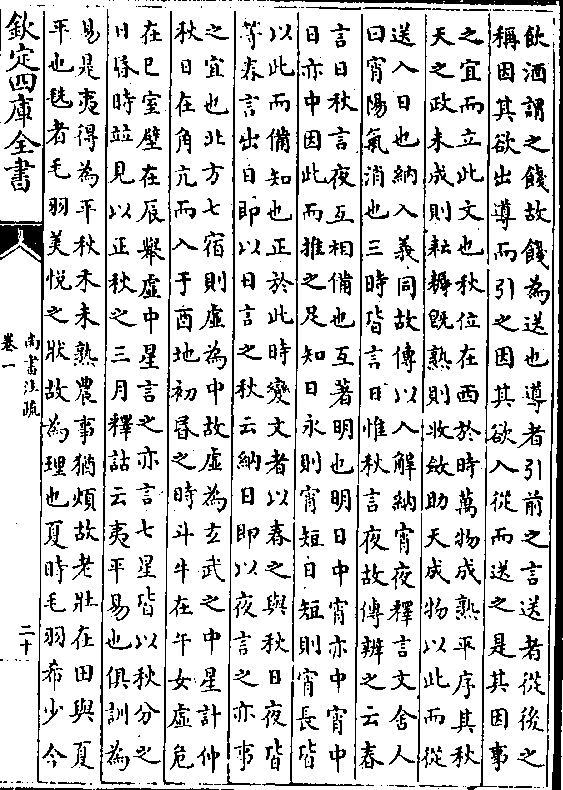 飲酒謂之餞故餞為送也導者引前之言送者從後之
稱因其欲出導而引之因其欲入從而送之是其因事
之宜而立此文也秋位在西於時萬物成熟平序其秋
天之政未成則耘耨既熟則收斂助天成物以此而從
送入日也納入義同故傳以入解納宵夜釋言文舍人
曰宵陽氣消也三時皆言日惟秋言夜故傳辨之云春
言日秋言夜互相備也互著明也明日中宵亦中宵中
日亦中因此而推之足知日永則宵短日短則宵長皆
以此而備知也正於此時變文者以春之與秋日夜皆
等春言出日即以日言之秋云納日即以夜言之亦事
之宜也北方七宿則虛為中故虛為玄武之中星計仲
秋日在角亢而入于酉地初昏之時斗牛在午女虛危
在巳室壁在辰舉虛中星言之亦言七星皆以秋分之
日昏時竝見以正秋之三月釋詁云夷平易也俱訓為
易是夷得為平秋禾未熟農事猶煩故老壯在田與夏
平也毨者毛羽美悅之狀故為理也夏時毛羽希少今
欽定四庫全書
尚書注疏
卷一
二十